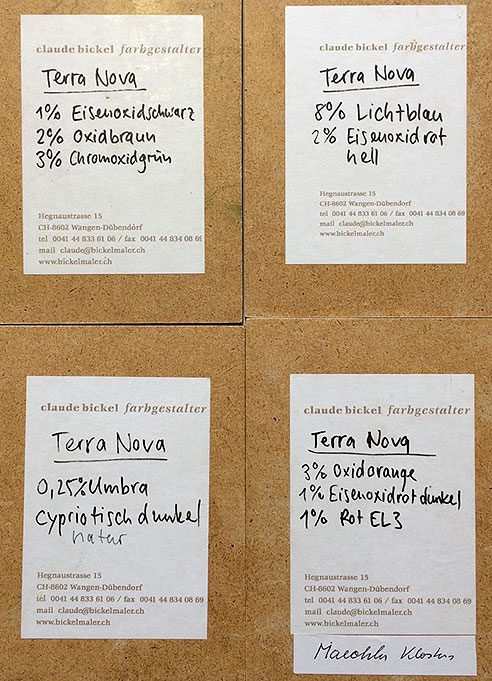 claude bickel farbgestalter
Terra Nova
1% Eisenoxidschwarz
2% Oxidbraun
3% Chromoxidgrün
Hegnaustrasse 15
CH-8602 Wangen-Dübendorf
tel 0041 44 833 61 06 / fax 0041 44 834 08 69
mail claude@bickelmaler.ch
www.bickelmaler.ch
claude bickel farbgestalter
Terra Nova
8% Lichtblau
2% Eisenoxidrot
hell
Hegnaustrasse 15
CH-8602 Wangen-Dübendorf
tel 0041 44 833 61 06 / fax 0041 44 834 08 69
mail claude@bickelmaler.ch
www.bickelmaler.ch
claude bickel farbgestalter
Terra Nova
0,25% Umbra
Cypriotisch dunkel
natur
Hegnaustrasse 15
CH-8602 Wangen-Dübendorf
tel 0041 44 833 61 06 / fax 0041 44 834 08 69
mail claude@bickelmaler.ch
www.bickelmaler.ch
claude bickel farbgestalter
Terra Nova
3% Oxidorange
1% Eisenoxidrot dunkel
1% Rot EL3
Hegnaustrasse 15
CH-8602 Wangen-Dübendorf
tel 0041 44 833 61 06 / fax 0041 44 834 08 69
mail claude@bickelmaler.ch
www.bickelmaler.ch